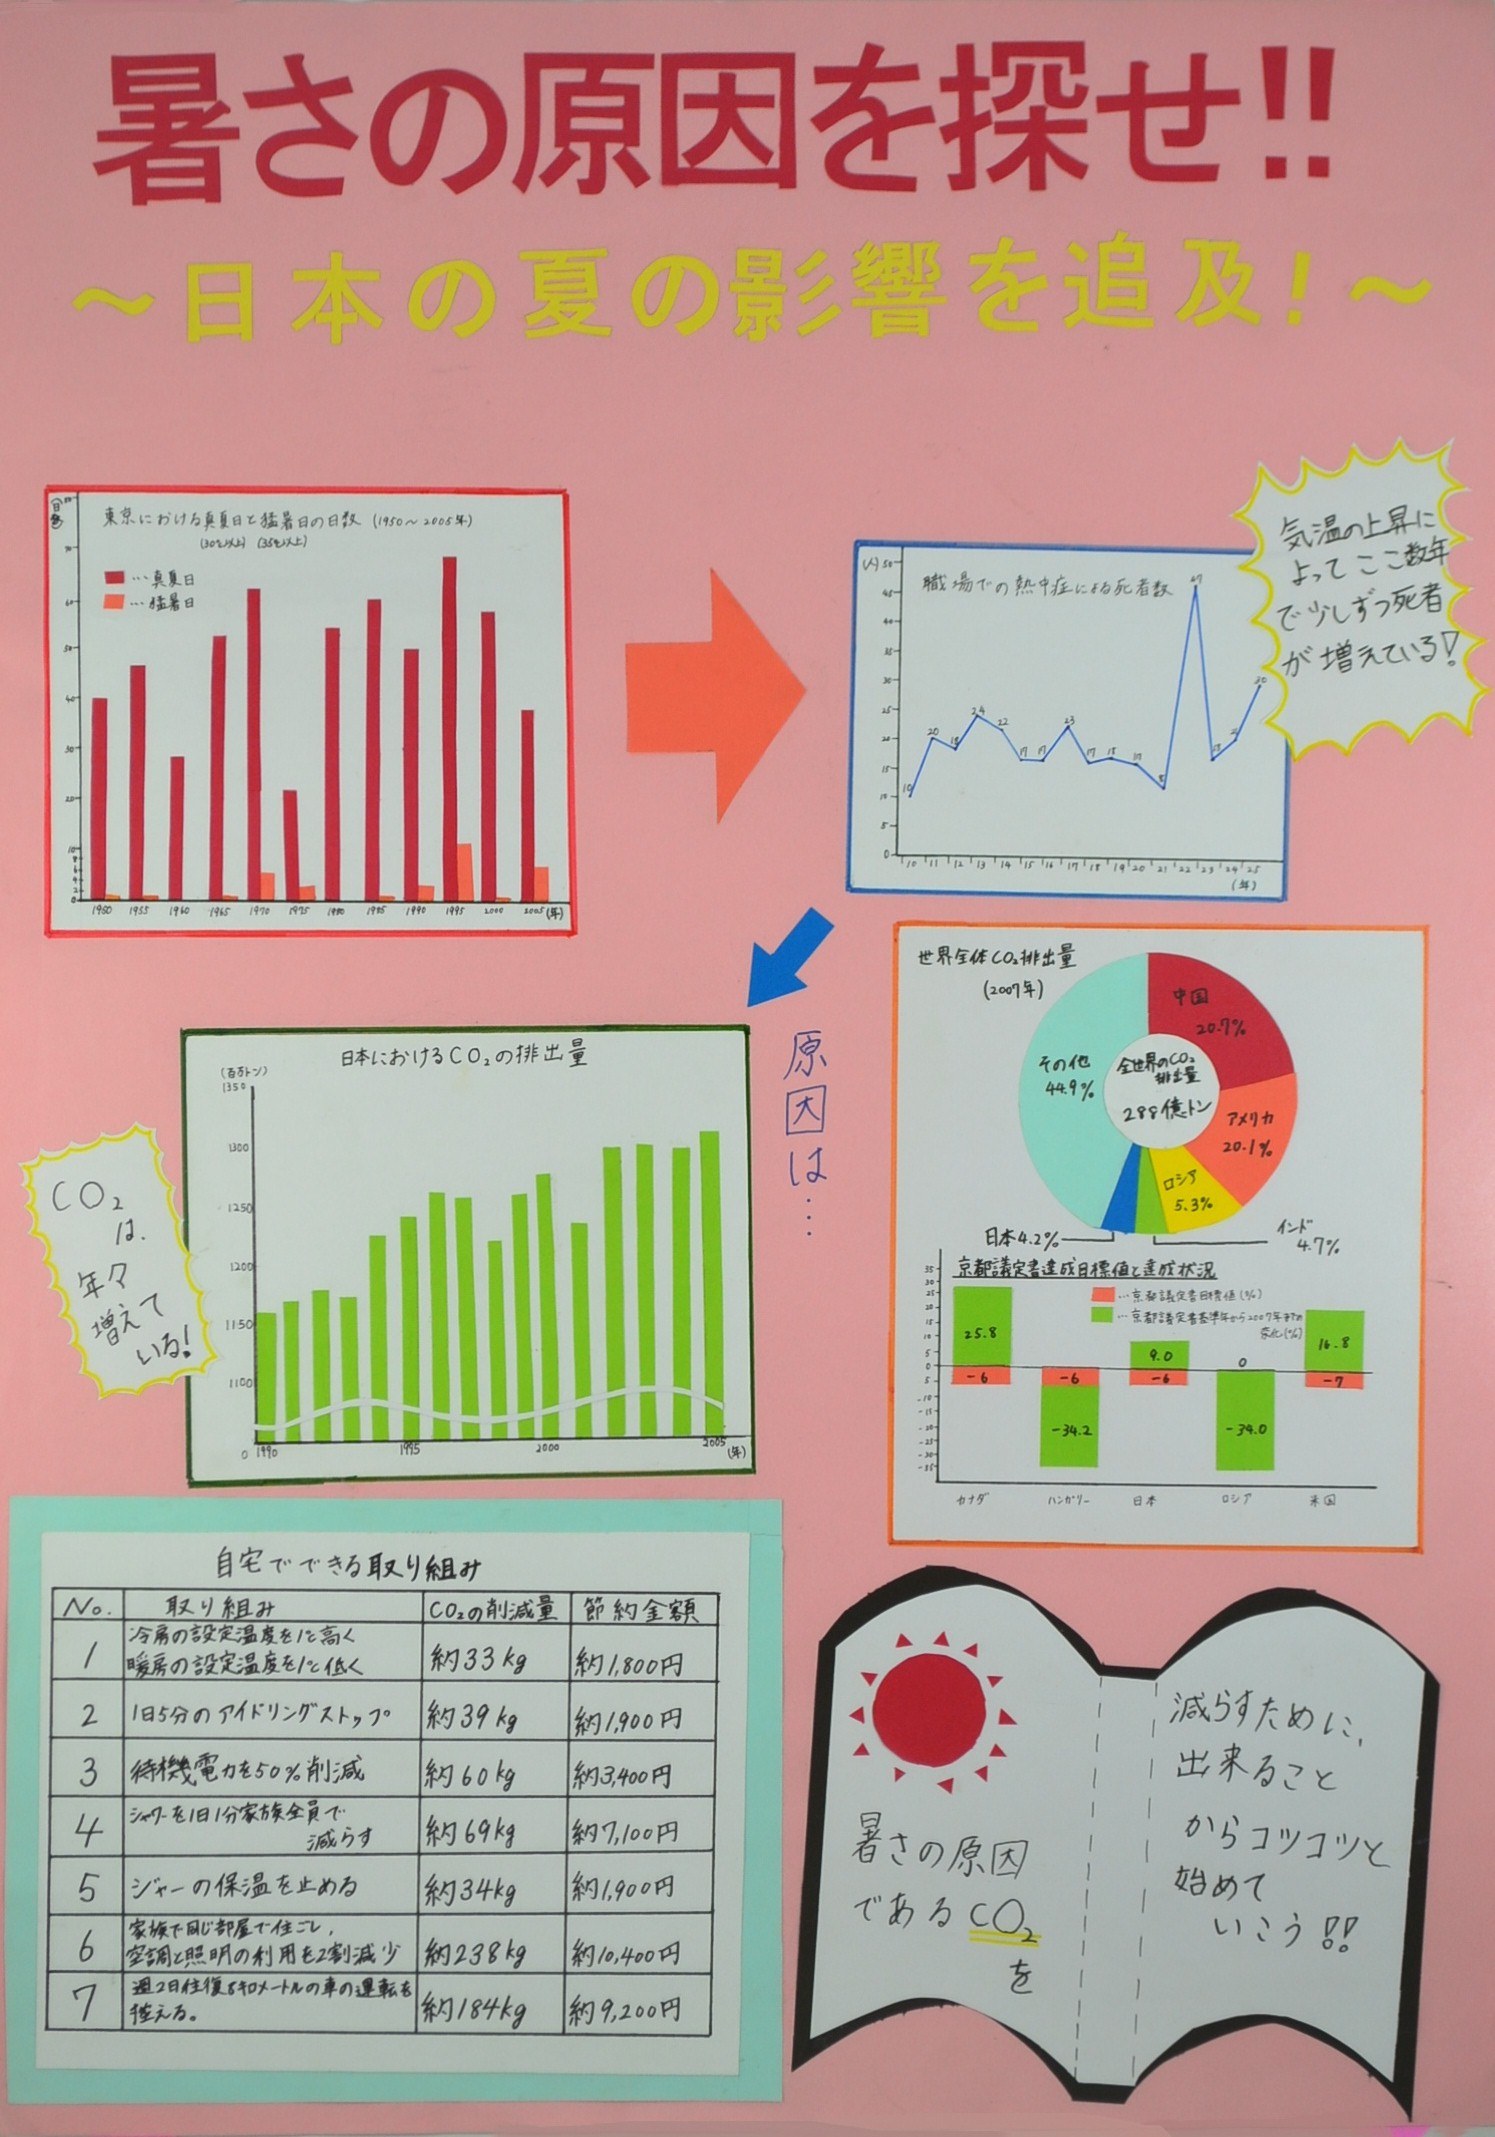 暑さの原因を探せ!!
～日本の夏の影響を追及!～
(日数)
東京における真夏日と猛暑日の日数 (1950～2005年)
(30℃以上) (35℃以上)
…真夏日
…猛暑日
70
60
50
40
30
20
10
8
6
4
2
0
1950 1955 1960 1965 1970 1975 1980 1985 1990 1995 2000 2005 (年)
(人)
職場での熱中症による死者数
50
45
40
35
30
25
20
15
10
5
0
10 20 18 24 22 17 17 23 17 18 17 47 30
10 11 12 13 14 15 16 17 18 19 20 21 22 23 24 25
(年)
気温の上昇に
よってここ数年
で少しずつ死者
が増えている!
原因は…
日本におけるCO₂の排出量
(百万トン)
1350
1300
1250
1200
1150
1100
0
1990 1995 2000 2005 (年)
CO₂
は、
年々
増えて
いる!
世界全体CO₂排出量
(2007年)
中国
20.7%
アメリカ
20.1%
ロシア
5.3%
インド
4.7%
日本4.2%
その他
44.9%
全世界のCO₂
排出量
288億トン
京都議定書達成目標値と達成状況
…京都議定書目標値(%)
…京都議定書基準年から2007年までの
変化(%)
35
30
25
20
15
10
5
0
5
-10
-15
-20
-25
-30
-35
25.8 9.0 0 16.8
-6 -6 -6 -7
-34.2 -34.0
カナダ ハンガリー 日本 ロシア 米国
自宅でできる取り組み
No. 取り組み CO₂の削減量 節約金額
1 冷房の設定温度を1℃高く
暖房の設定温度を1℃低く 約33kg 約1,800円
2 1日5分のアイドリングストップ 約39kg 約1,900円
3 待機電力を50%削減 約60kg 約3,400円
4 シャワーを1日1分家族全員で
減らす 約69kg 約7,100円
5 ジャーの保温を止める 約34kg 約1,900円
6 家族で同じ部屋で住ごし、
空調と照明の利用を2割減少 約238kg 約10,400円
7 週2日往復8キロメートルの車の運転を
控える。 約184kg 約9,200円
暑さの原因
であるCO₂
を
減らすために、
出来ること
からコツコツと
始めて
いこう!!